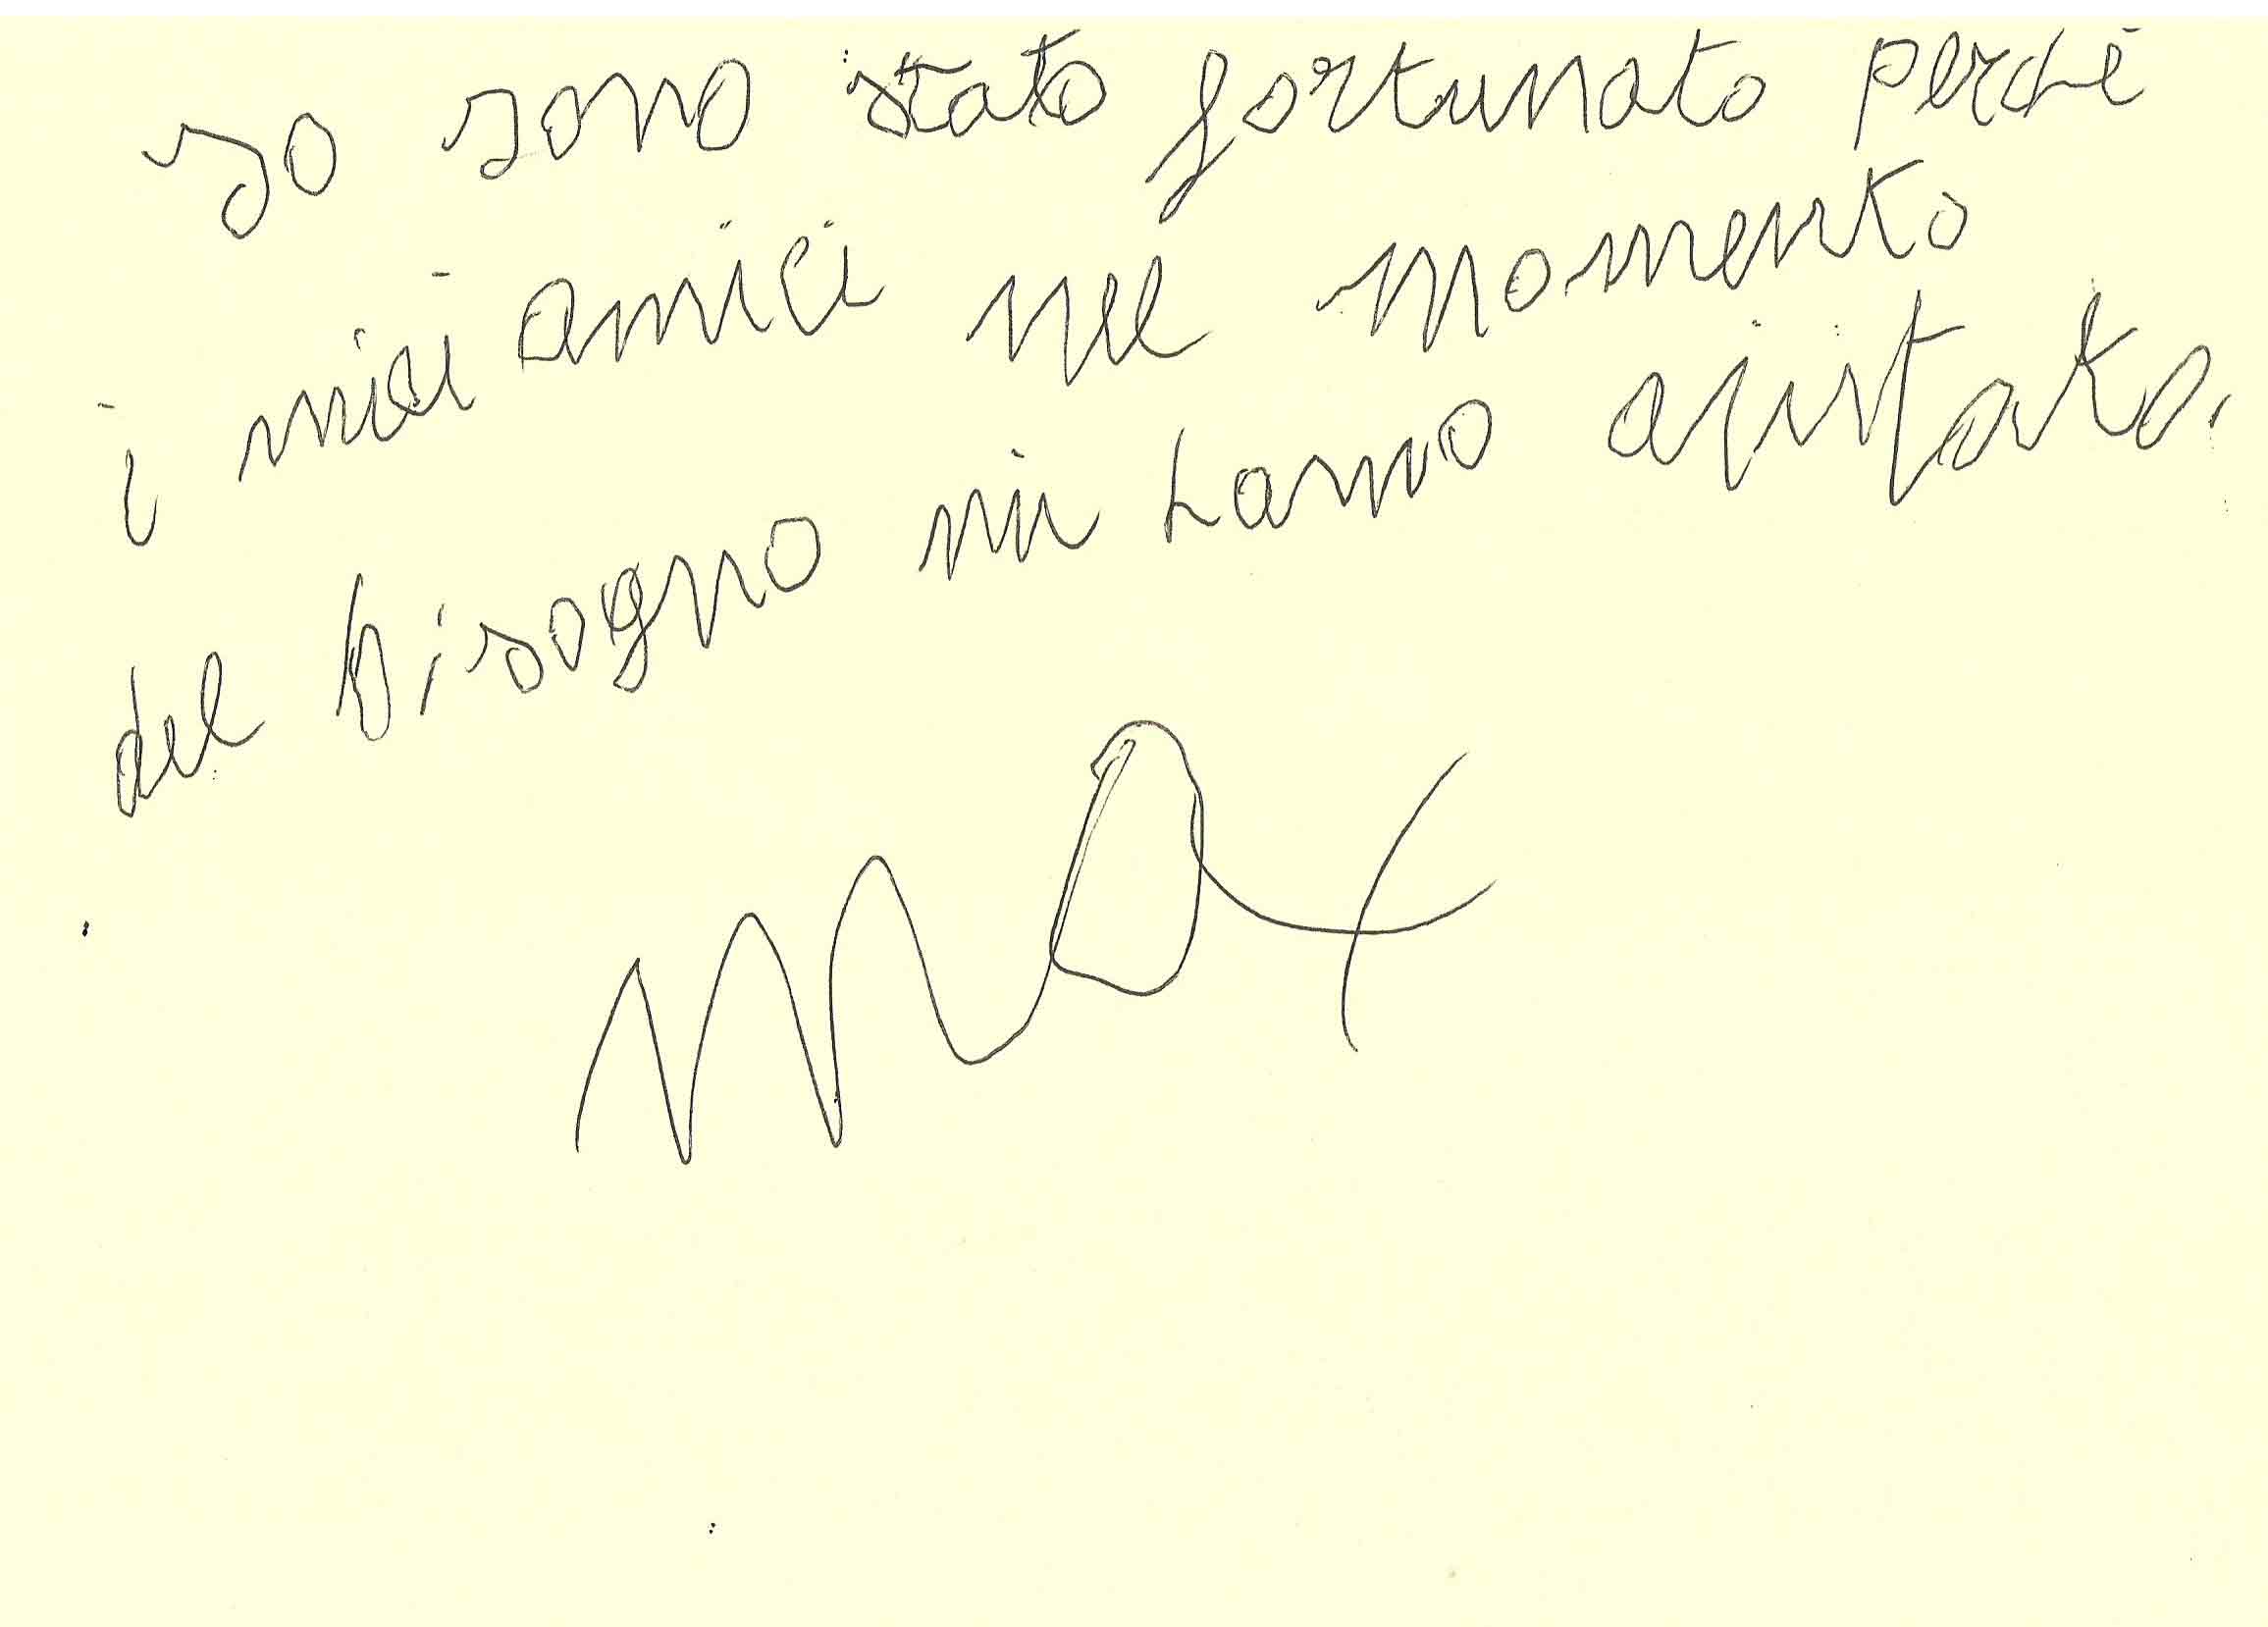 Io sono stato fortunato perchè
i miei amici nel momento
del bisogno mi hanno aiutato.
Max